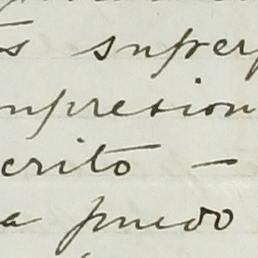 s superf
mpresion
erito —
a puedo